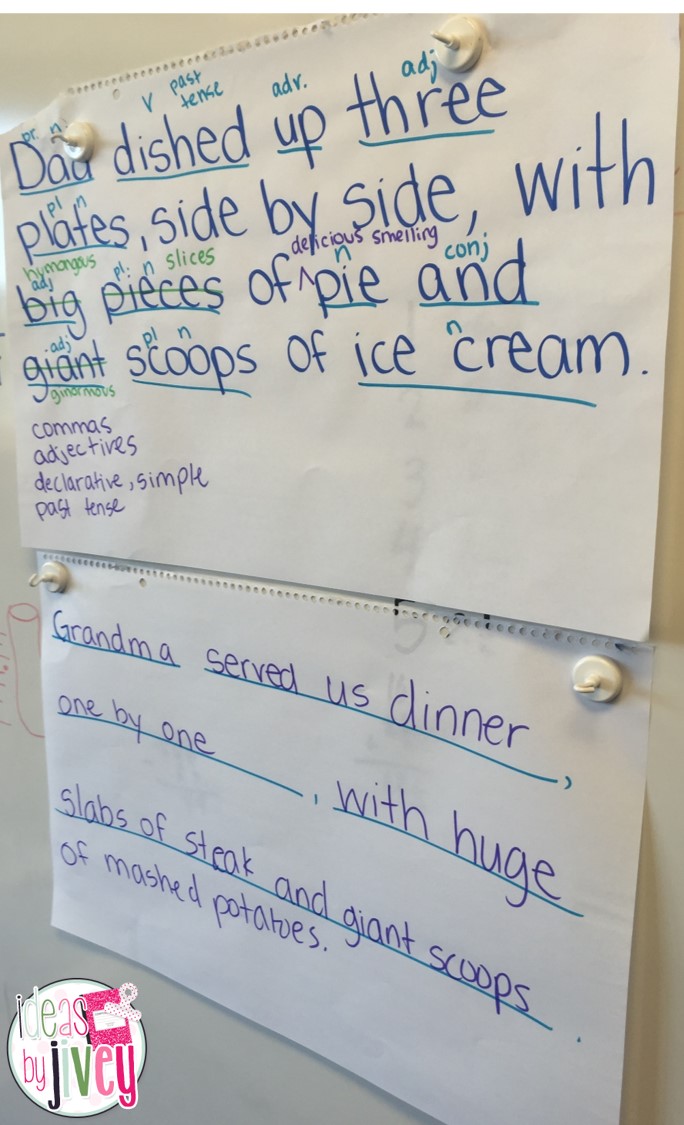 v past tense adv. adj
pr. n
Dad dished up three
pl n
plates, side by side, with
hymongous slices delicious smelling
adj pl. n n conj
big pieces of ^ pie and
adj pl n n
giant scoops of ice cream.
ginormous
commas
adjectives
declarative, simple
past tense
Grandma served us dinner,
one by one, with huge
slabs of steak and giant scoops
of mashed potatoes. .
ideas
by jivey